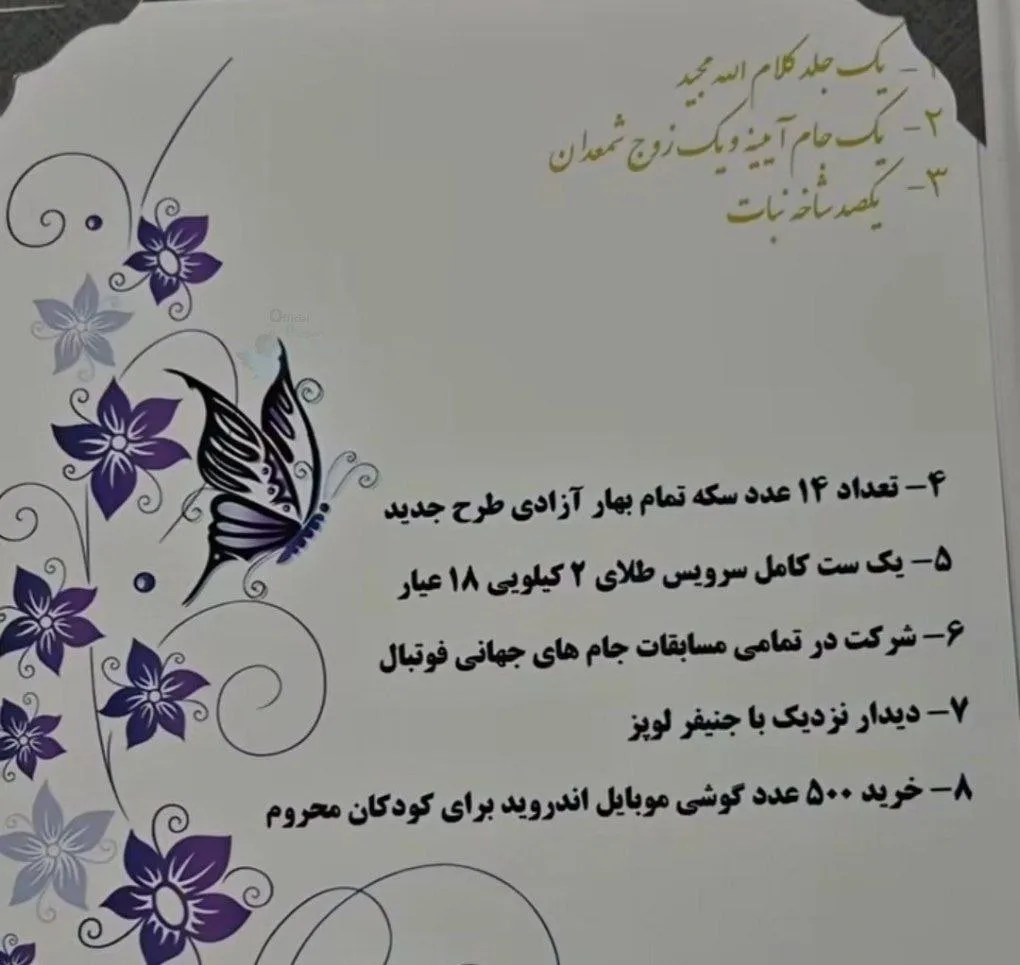 ۱- یک جلد کلام الله مجید
۲- یک جام آیینه و یک زوج شمعدان
۳- یکصد شاخه نبات
Official
۴- تعداد ۱۴ عدد سکه تمام بهار آزادی طرح جدید
۵- یک ست کامل سرویس طلای ۲ کیلویی ۱۸ عیار
۶- شرکت در تمامی مسابقات جام های جهانی فوتبال
۷- دیدار نزدیک با جنیفر لوپز
۸- خرید ۵۰۰ عدد گوشی موبایل اندروید برای کودکان محروم